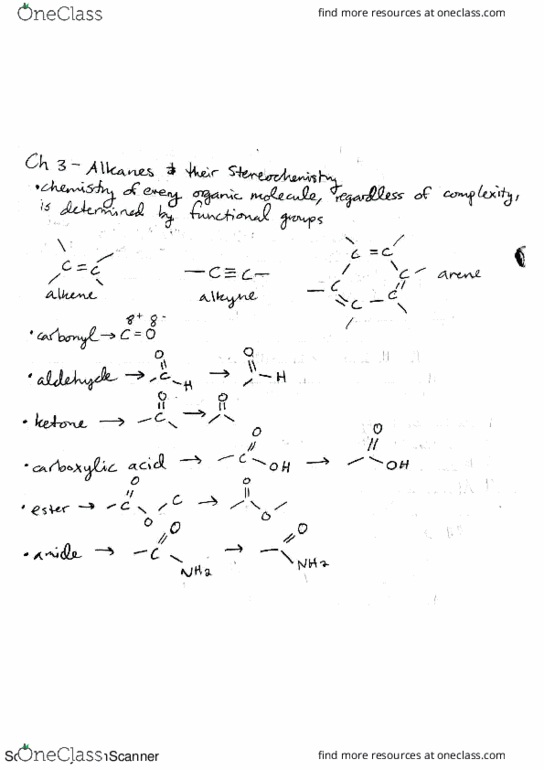 OneClass find more resources at oneclass.com
Ch 3 - Alkanes & their Stereochemistry
•chemistry of every organic molecule, regardless of complexity,
is determined by functional groups
C=C
alkene
—C≡C—
alkyne
C=C
C C
C=C–C
arene
•carbonyl→ C=O
δ+ δ-
•aldehyde → C O H → O H
•ketone → C O → O
•carboxylic acid → C O OH → O OH
•ester → C O O C → O O
•amide → C O NH2 → O NH2
OneClass Scanner find more resources at oneclass.com